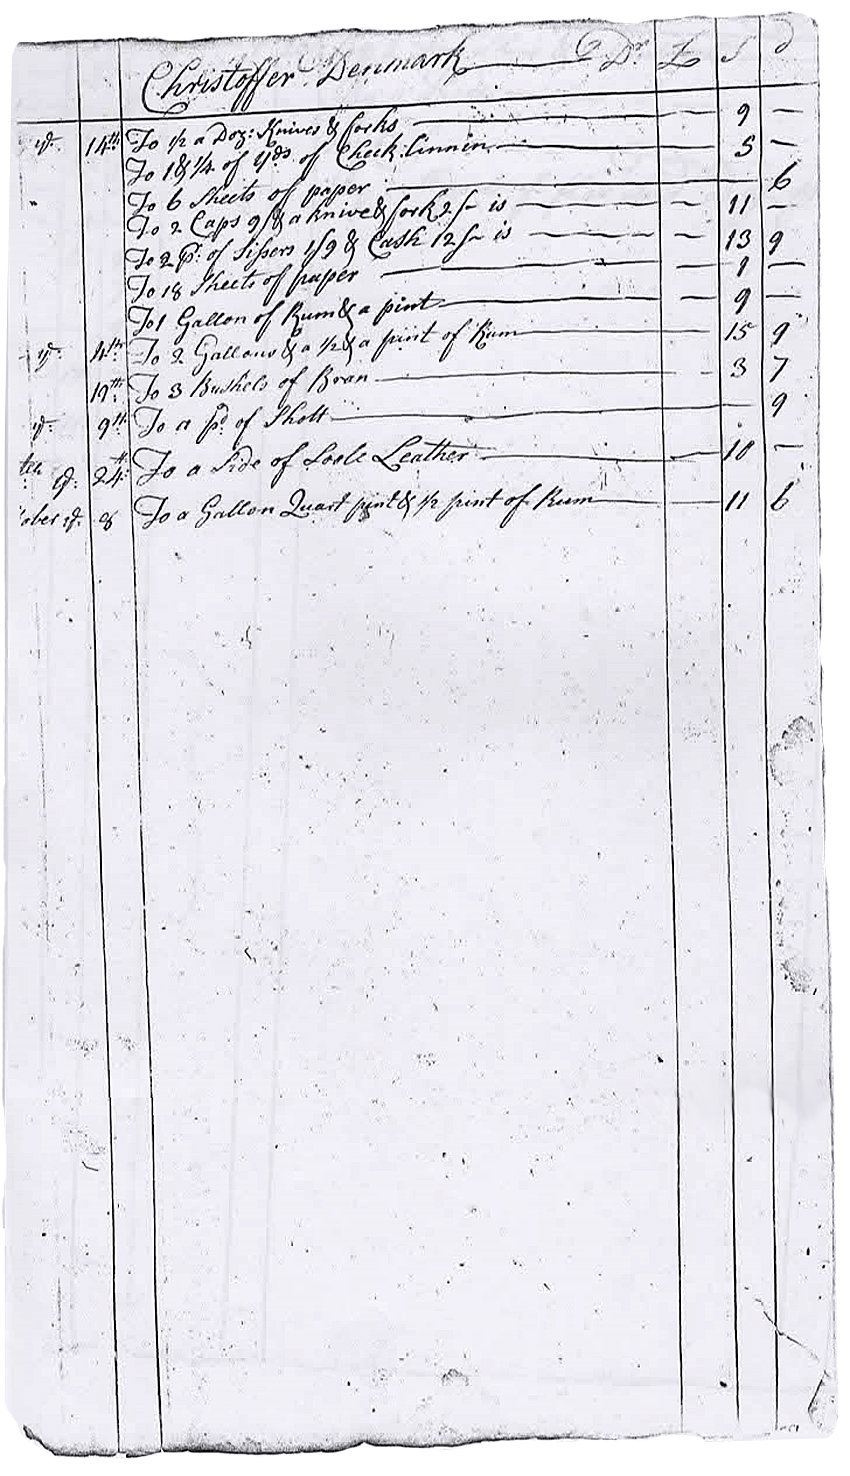 Christoffer Denmark Dr £ S d
yd. 14th To ½ a Doz: Knives & forks — 9 —
To 1 & ¼ of yds of Check linnin — 5 —
To 6 Sheets of paper — 6
To 2 Caps 9/ & a knive & fork 2/ is — 11 —
To 2 Pr. of Sissers 1/9 & Cash 12/ is — 13 9
To 18 Sheets of paper — 1 —
To 1 Gallon of Rum & a pint — 9 —
yd. 4th To 2 Gallons & a ½ & a pint of Rum — 15 9
19th To 3 Bushels of Bran — 3 7
yd. 9th To a pd. of Shott — 9
yd. 24th To a Side of Soole Leather — 10 —
ober yd. 8 To a Gallon Quart pint & ½ pint of Rum — 11 6